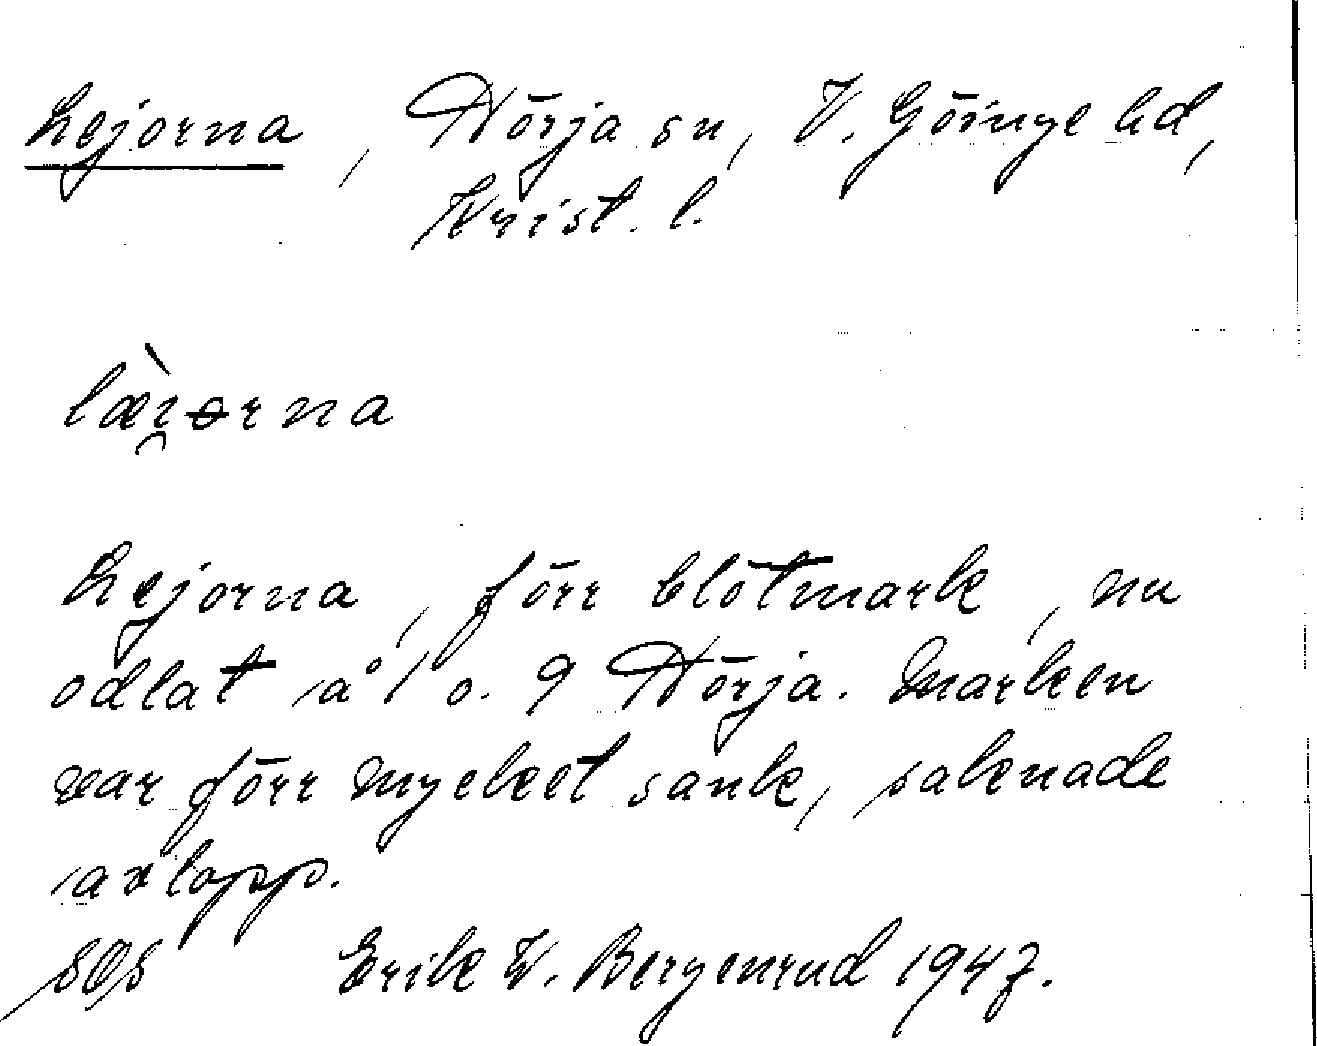 Lejorna, Nörja sn, V. Göinge hd,
Krist. l.
læ̀i̯ɵrna
Lejorna, förr blötmark, nu
odlat å 1 o. 9 Nörja. Marken
var förr mycket sank, saknade
avlopp.
SOS Erik W. Bergenrud 1947.